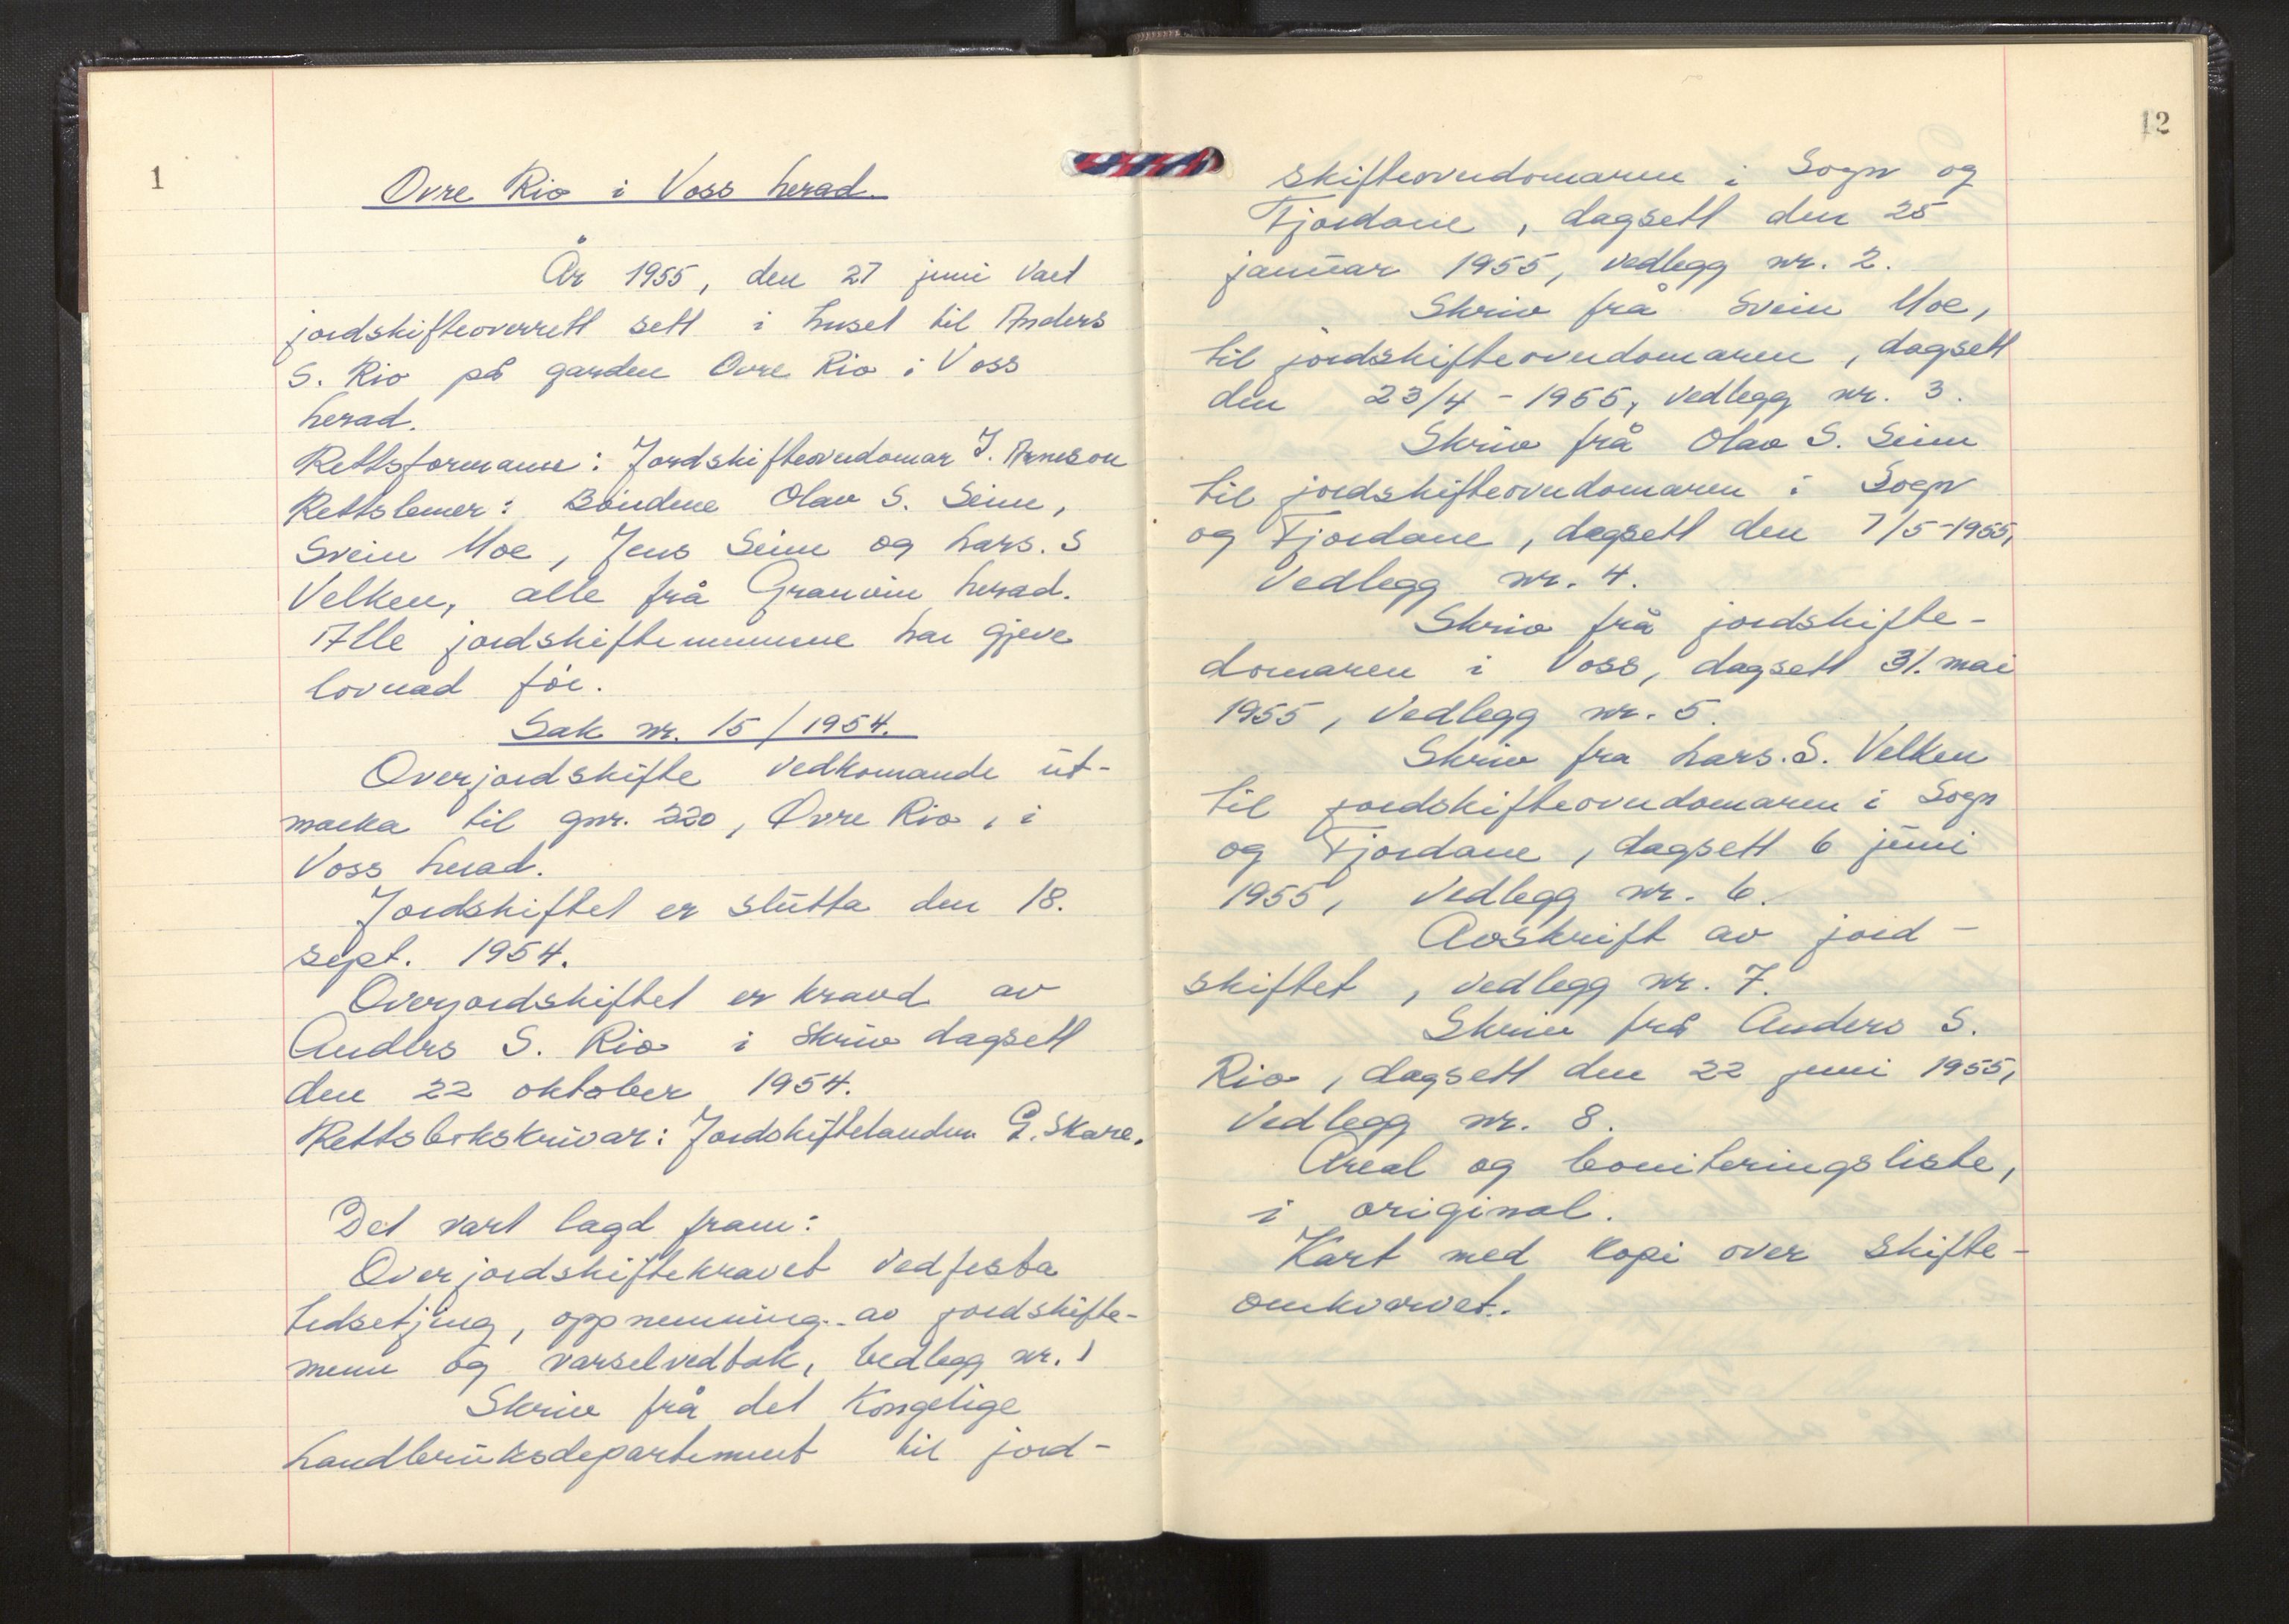 1
Ovre Rio i Voss herad.
År 1955, den 27 juni vart
jordskifteoverrett sett i huset til Anders
S. Rio på garden Ovre Rio i Voss
herad.
Rettsformann: Jordskifteoverdomar J. Arneson
Rettslemer: Bøndene Olav S. Seim,
Svein Moe, Jens Seim og Lars. S
Velken, alle frå Granvin herad.
Alle jordskiftemennene har gjeve
lovnad før.
Sak nr. 15/1954.
Overjordskifte vedkomande ut-
marka til gnr. 220, Øvre Rio, i
Voss herad.
Jordskiftet er slutta den 18.
sept. 1954.
Overjordskiftet er kravd av
Anders S. Rio i skriv dagsett
den 22 oktober 1954.
Rettsbokskrivar: Jordskiftekandm G. Skare.
Det vart lagd fram:
Overjordskiftekravet vedfesta
tidsetjing, oppnemning av jordskifte-
menn og varselvedtak, vedlegg nr. 1
Skriv frå det Kongelige
Landbruksdepartement til jord-
12
skifteoverdomaren i Sogn og
Fjordane, dagsett den 25
januar 1955, vedlegg nr. 2.
Skriv frå Svein Moe,
til jordskifteoverdomaren, dagsett
den 23/4 - 1955, vedlegg nr. 3.
Skriv frå Olav S. Seim
til jordskifteoverdomaren i Sogn
og Fjordane, dagsett den 7/5-1955,
Vedlegg nr. 4.
Skriv frå jordskifte-
domaren i Voss, dagsett 31. mai
1955, Vedlegg nr. 5.
Skriv fra Lars. S. Velken
til jordskifteoverdomaren i Sogn
og Fjordane, dagsett 6 juni
1955, Vedlegg nr. 6.
Avskrift av jord-
skiftet, vedlegg nr. 7.
Skriv frå Anders S.
Rio, dagsett den 22 juni 1955,
Vedlegg nr. 8.
Areal og boniteringsliste,
i original.
Kart med kopi over skifte-
omkvervet.